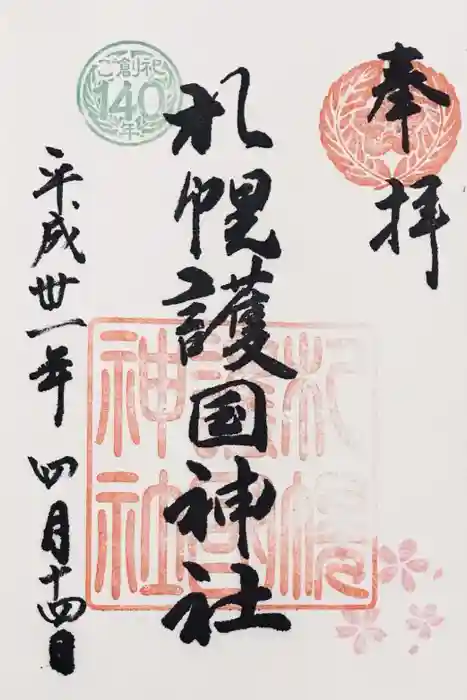 奉拝
札幌護国神社
ご創祀
140
年
平成丗一年四月十四日
札幌
護国
神社